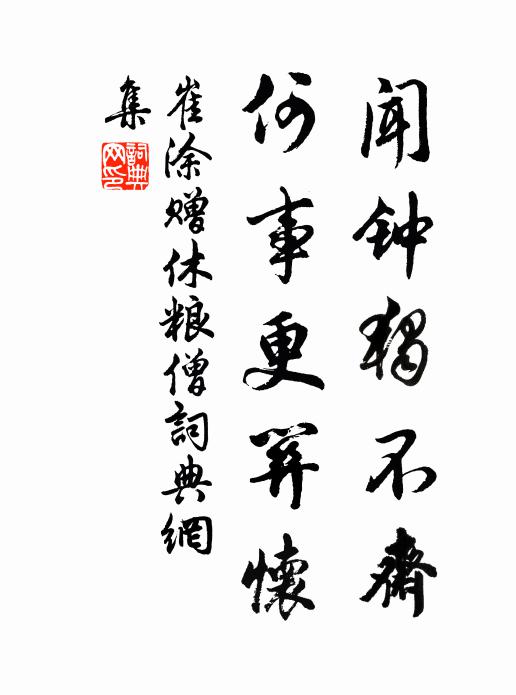 闻钟獨不齋
何事更关懷
崔涂赠休粮僧詞典網
集
詞典网印